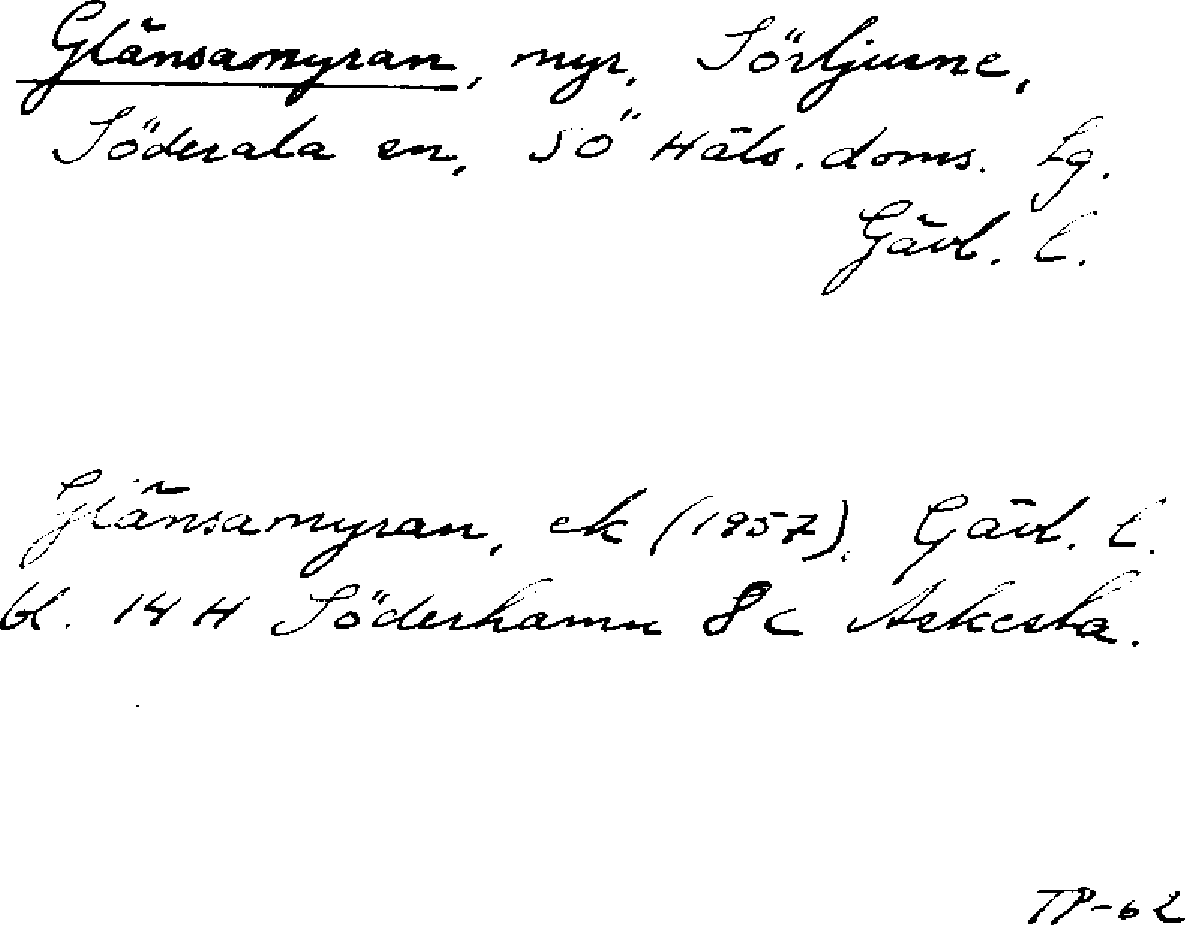 Glänsamyran, myr, Sörljusne,
Söderala sn, SÖ Häls. doms. Lg.
Gävl. l.
Glänsamyran, ek (1957). Gävl. l.
bl. 14 H Söderhamn 8 c Askesta.
TP-62